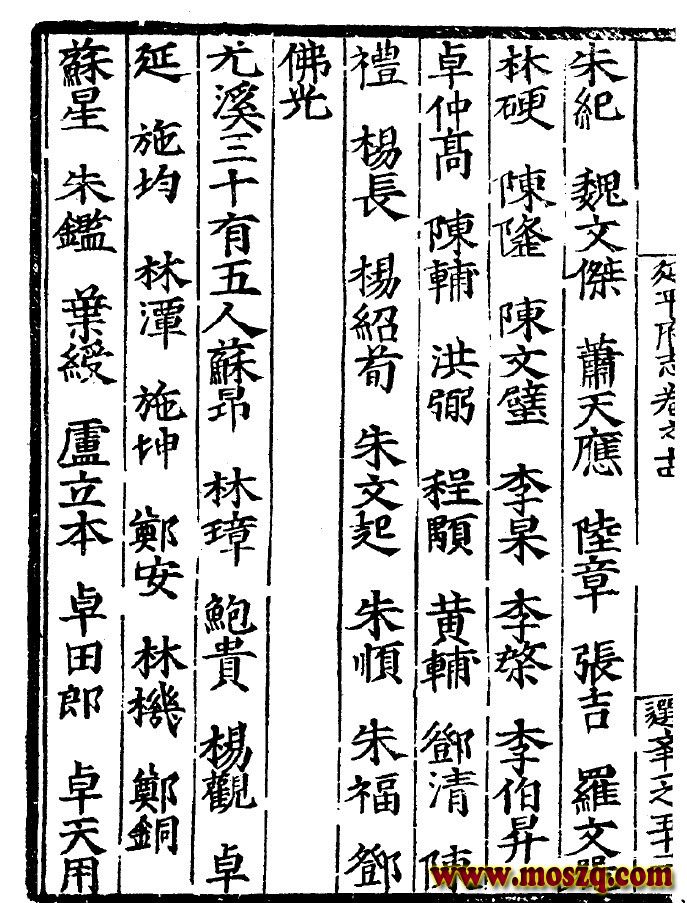 延平府志卷之十四
選舉之五十
朱紀 魏文傑 蕭天應 陸章 張吉 羅文
林硬 陳隆 陳文璧 李杲 李棨 李伯昇
卓仲高 陳輔 洪弼 程顒 黃輔 鄧清 陳
禮 楊長 楊紹荀 朱文起 朱順 朱福 鄧
佛光
尤溪三十有五人蘇昂 林璋 鮑貴 楊觀 卓
延 施均 林潭 施坤 鄭安 林機 鄭銅
蘇星 朱鑑 葉綬 盧立本 卓田郎 卓天用
www.moszq.com